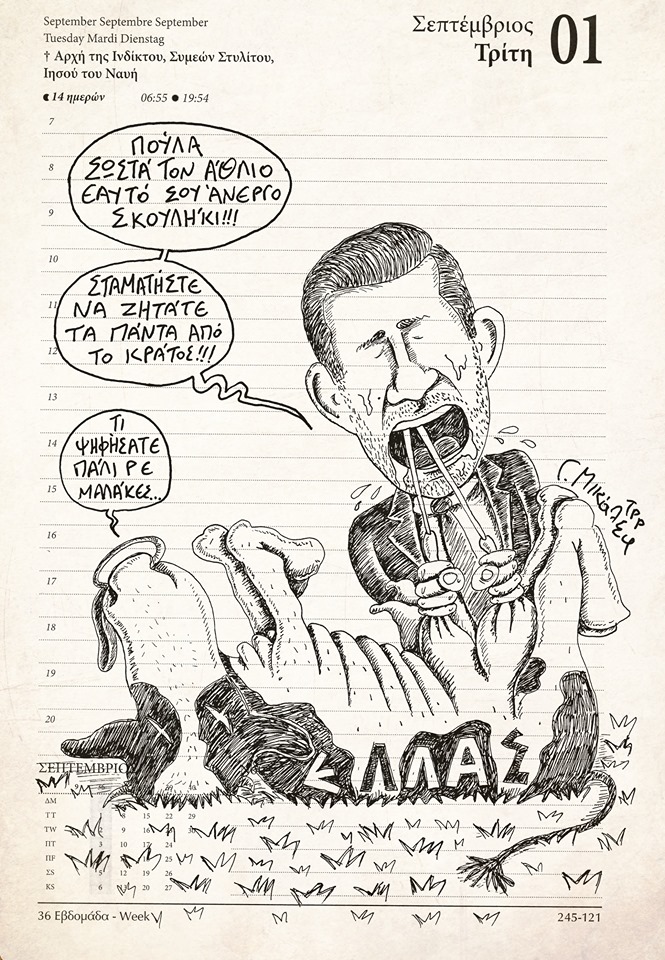 September Septembre September
Tuesday Mardi Dienstag
† Αρχή της Ινδίκτου, Συμεών Στυλίτου,
Ιησού του Ναυή
14 ημερών 06:55 ● 19:54
Σεπτέμβριος
Τρίτη
01
7
8
9
10
11
12
13
14
15
16
17
18
19
20
ΠΟΎΛΑ
ΣΩΣΤΆ ΤΟΝ ΆΘΛΙΟ
ΕΑΥΤΌ ΣΟΥ ΆΝΕΡΓΟ
ΣΚΟΥΛΉΚΙ!!!
ΣΤΑΜΑΤΉΣΤΕ
ΝΑ ΖΗΤΆΤΕ
ΤΑ ΠΆΝΤΑ ΑΠΌ
ΤΟ ΚΡΆΤΟΣ!!!
ΤΙ
ΨΗΦΉΣΑΤΕ
ΠΆΛΙ ΡΕ
ΜΑΛΆΚΕΣ...
ΕΛΛΑΣ
ΣΕΠΤΕΜΒΡΙΟ
ΔΜ
ΤΤ 8 15 22 29
TW 9 16
ΠΤ 3 10 17 24
ΠF 25
ΣS 5 12 19 26
KS 6 20 27
36 Εβδομάδα - Week
245-121